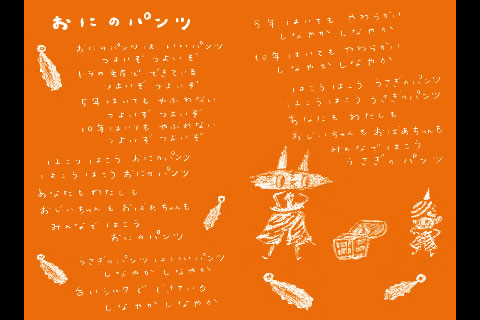 おにのパンツ
おにのパンツは いいパンツ
つよいぞ つよいぞ
トラの毛皮で できている
つよいぞ つよいぞ
5年 はいても やぶれない
つよいぞ つよいぞ
10年 はいても やぶれない
つよいぞ つよいぞ
はこう はこう おにのパンツ
はこう はこう おにのパンツ
あなたも わたしも
おじいちゃんも おばあちゃんも
みんなで はこう
おにの パンツ
うさぎのパンツ はいいパンツ
しなやか しなやか
白いシルクで できている
しなやか しなやか
5年 はいても やわらかい
しなやか しなやか
10年 はいても やわらかい
しなやか しなやか
はこう はこう うさぎのパンツ
はこう はこう うさぎのパンツ
あなたも わたしも
おじいちゃんも おばあちゃんも
みんなで はこう
うさぎの パンツ